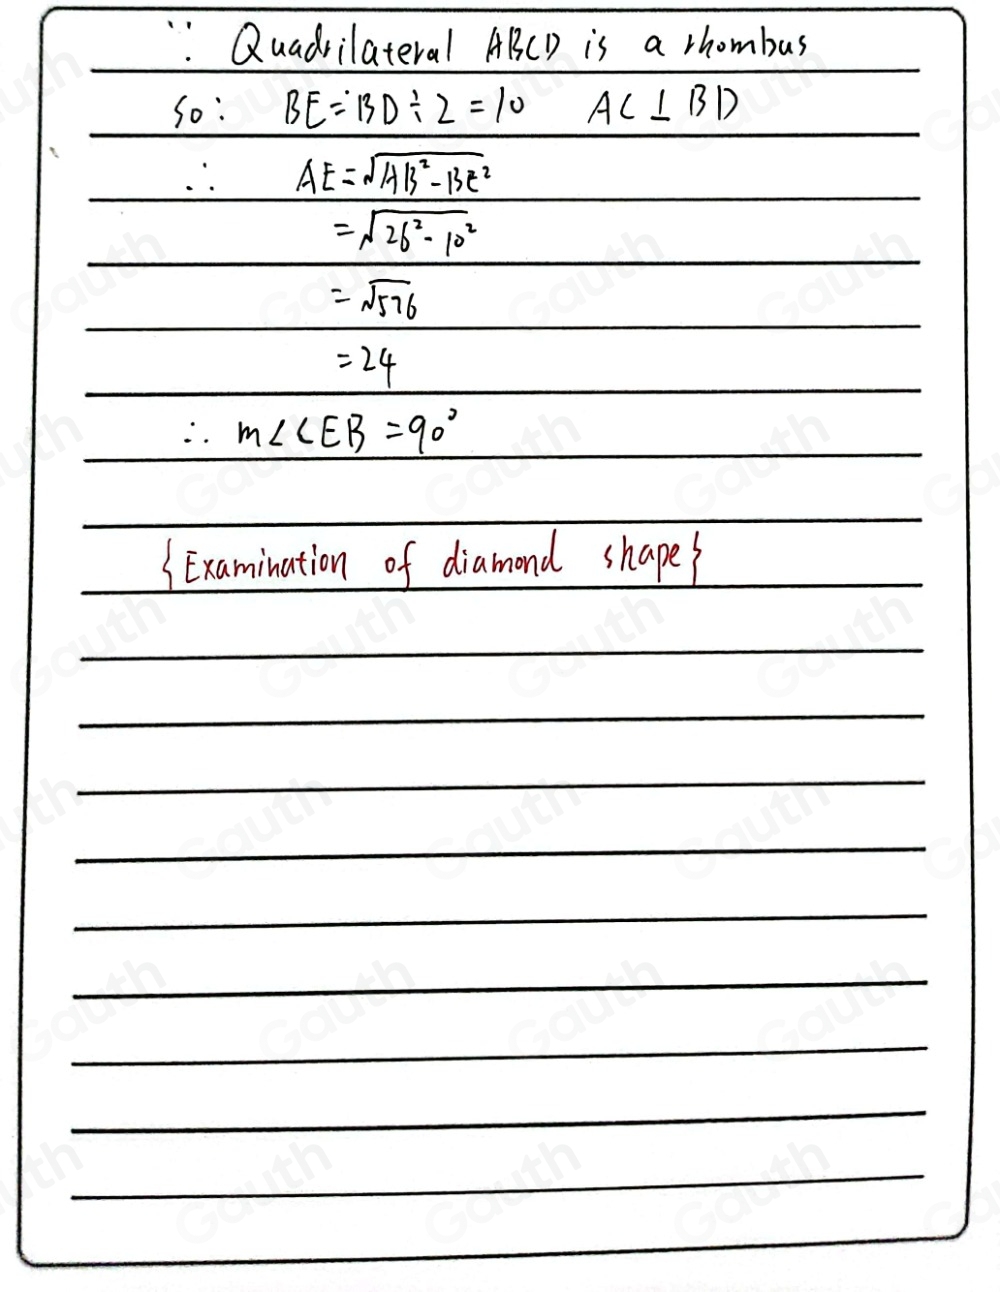 ∵ Quadrilateral ABCD is a rhombus
So: BE = BD ÷ 2 = 10 AC ⊥ BD
∴ AE = √AB² - BE²
= √26² - 10²
= √576
= 24
∴ m∠CEB = 90°
{Examination of diamond shape}